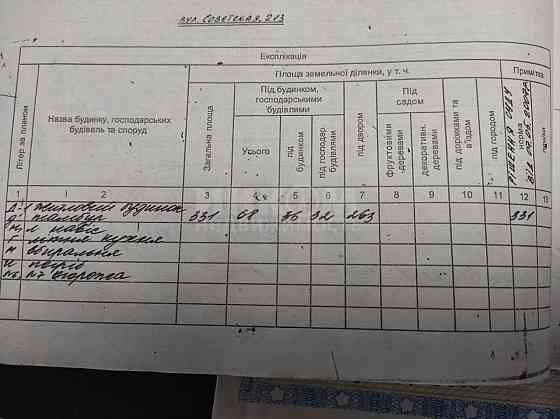 вул. Советская, 213
Експлікація
Літер за планом
Назва будинку, господарських будівель та споруд
Площа земельної ділянки, у т. ч.
Примітка
Загальна площа
Під будинком, господарськими будівлями
Усього
під будинком
під господар. будівлями
під двором
Під садом
фруктовими деревами
декоративн. деревами
під доріжками та
під городом
Рішення суду
норма
1 2 3 4 5 6 7 8 9 10 11 12 13
житловий будинок
тамбур 331 68 36 32 263 331
навіс
літня кухня
вбиральня
погріб
огорожа